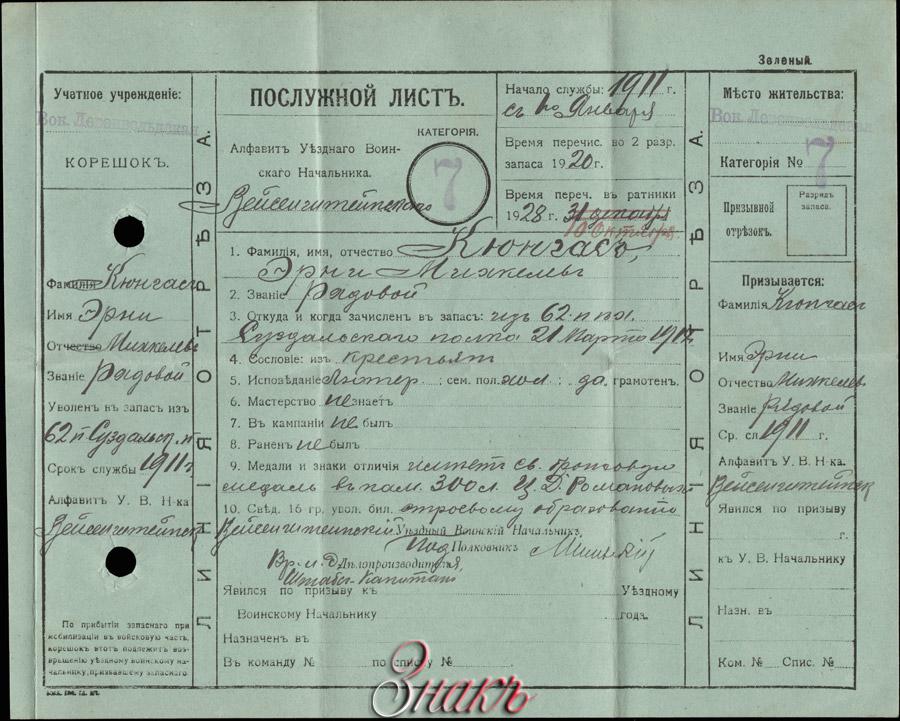 Зеленый.
Учатное учрежденіе:
Вок. Лезенвольдская
КОРЕШОКЪ.
Фамилія Кюнгасъ
Имя Эрни
Отчество Михкелевъ
Званіе Рядовой
Уволенъ въ запасъ изъ
62 п Суздальск. п
Срокъ службы 1911 г
Алфавитъ У. В. Н-ка
Вейсенштейнск
По прибытіи запаснаго при
мобилизаціи въ войсковую часть,
корешокъ этотъ подлежитъ воз-
вращенію уѣздному воинскому на-
чальнику, призвавшему запаснаго
ЛИНІЯ ОТРѢЗА.
ПОСЛУЖНОЙ ЛИСТЪ.
КАТЕГОРІЯ.
7
Алфавитъ Уѣзднаго Воин-
скаго Начальника.
Вейсенштейнскаго
Начало службы: 1911 г.
съ 1го Января
Время перечис. во 2 разр.
запаса 1920 г.
Время переч. въ ратники
1928 г. 31 декабря
10 Октября.
1. Фамилія, имя, отчество Кюнгасъ,
Эрни Михкелевъ
2. Званіе Рядовой
3. Откуда и когда зачисленъ въ запасъ: изъ 62 п. пх.
Суздальскаго полка 21 Марта 1914 г.
4. Сословіе: изъ крестьянъ
5. Исповѣданіе Лютер.; сем. пол. хол.; да грамотенъ.
6. Мастерство не знаетъ
7. Въ кампаніи не былъ
8. Раненъ не былъ
9. Медали и знаки отличія имѣетъ св. бронзовую
медаль въ пам. 300 л. Ц. Д. Романовыхъ
10. Свѣд. 16 гр. увол. бил. строевому образованію
Вейсенштейнскій Уѣздный Воинскій Начальникъ,
Под Полковникъ
Вр. и. д. Дѣлопроизводителя,
Штабсъ-Капитанъ
Явился по призыву къ Уѣздному
Воинскому Начальнику года.
Назначенъ въ
Въ команду № по списку №
ЛИНІЯ ОТРѢЗА.
Мѣсто жительства:
Вок. Лезенвольдская
Категорія № 7
Призывной
отрѣзокъ.
Разрядъ
запаса.
Призывается:
Фамилія Кюнгасъ
Имя Эрни
Отчество Михкелев
Званіе Рядовой
Ср. сл 1911 г.
Алфавитъ У. В. Н-ка.
Вейсенштейнск
Явился по призыву
г.
къ У. В. Начальнику
Назн. въ
Ком. № Спис. №
Знакъ